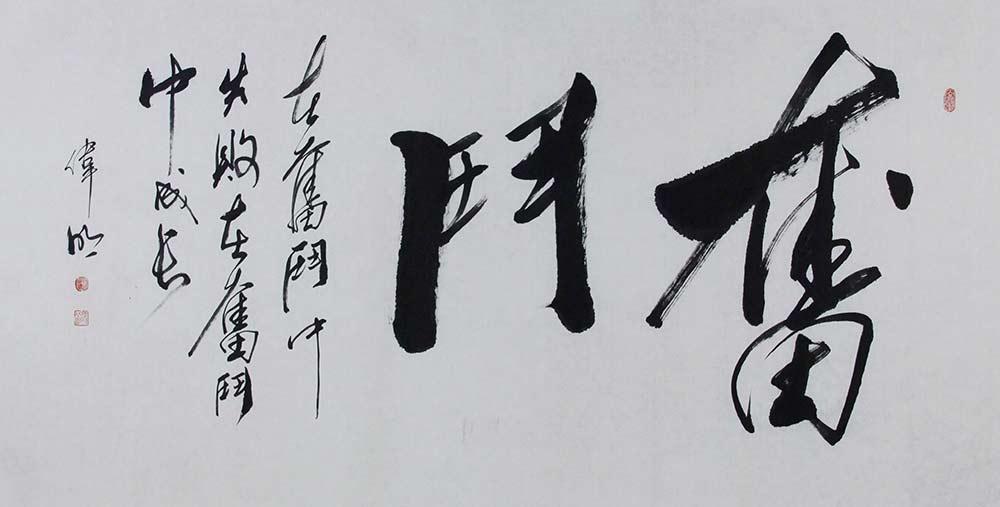 奮鬥
在奮鬥中
失敗在奮鬥
中成長
偉明